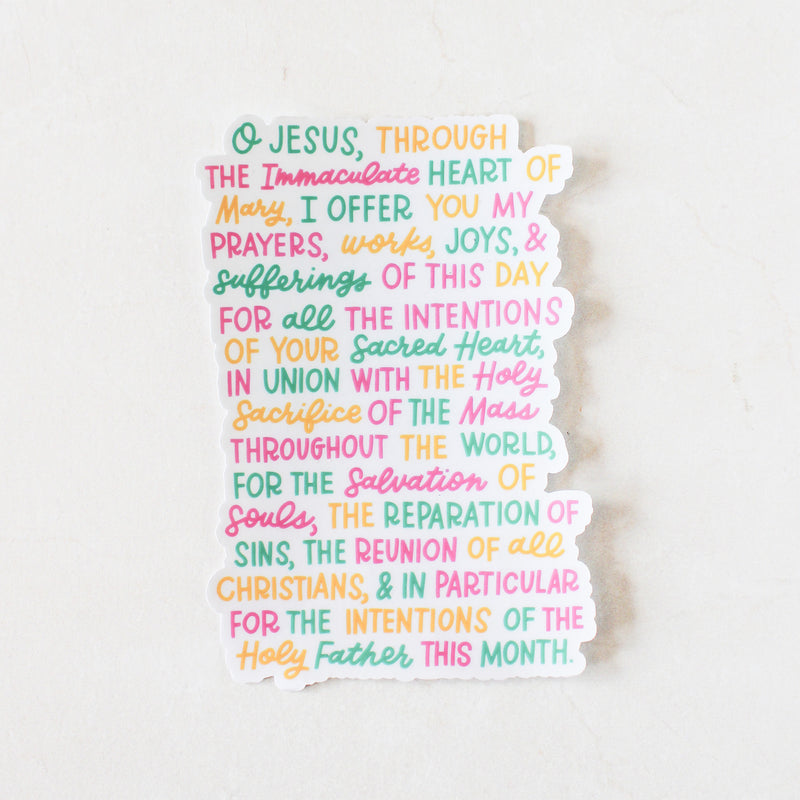 O JESUS, THROUGH
THE Immaculate HEART OF
Mary, I OFFER YOU MY
PRAYERS, works, JOYS, &
sufferings OF THIS DAY
FOR all THE INTENTIONS
OF YOUR Sacred Heart,
IN UNION WITH THE Holy
Sacrifice OF THE Mass
THROUGHOUT THE WORLD,
FOR THE Salvation OF
Souls, THE REPARATION OF
SINS, THE REUNION OF all
CHRISTIANS, & IN PARTICULAR
FOR THE INTENTIONS OF THE
Holy Father THIS MONTH.